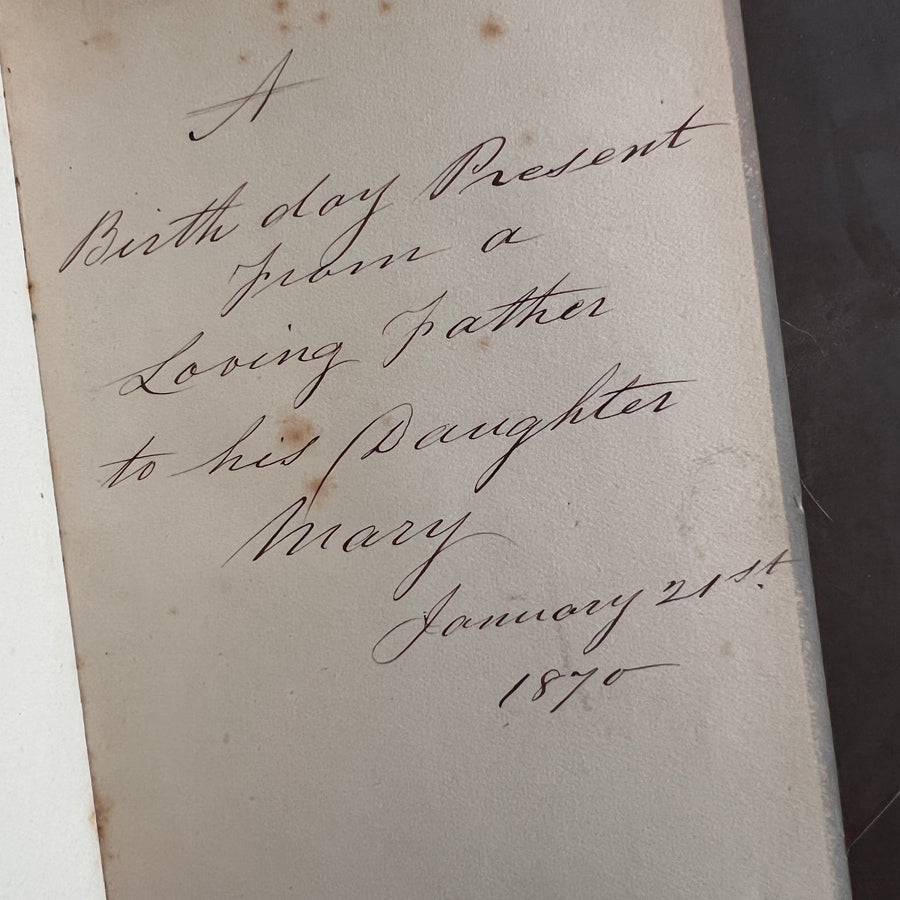 A
Birth day Present
From a
Loving Father
to his Daughter
Mary
January 21st.
1870